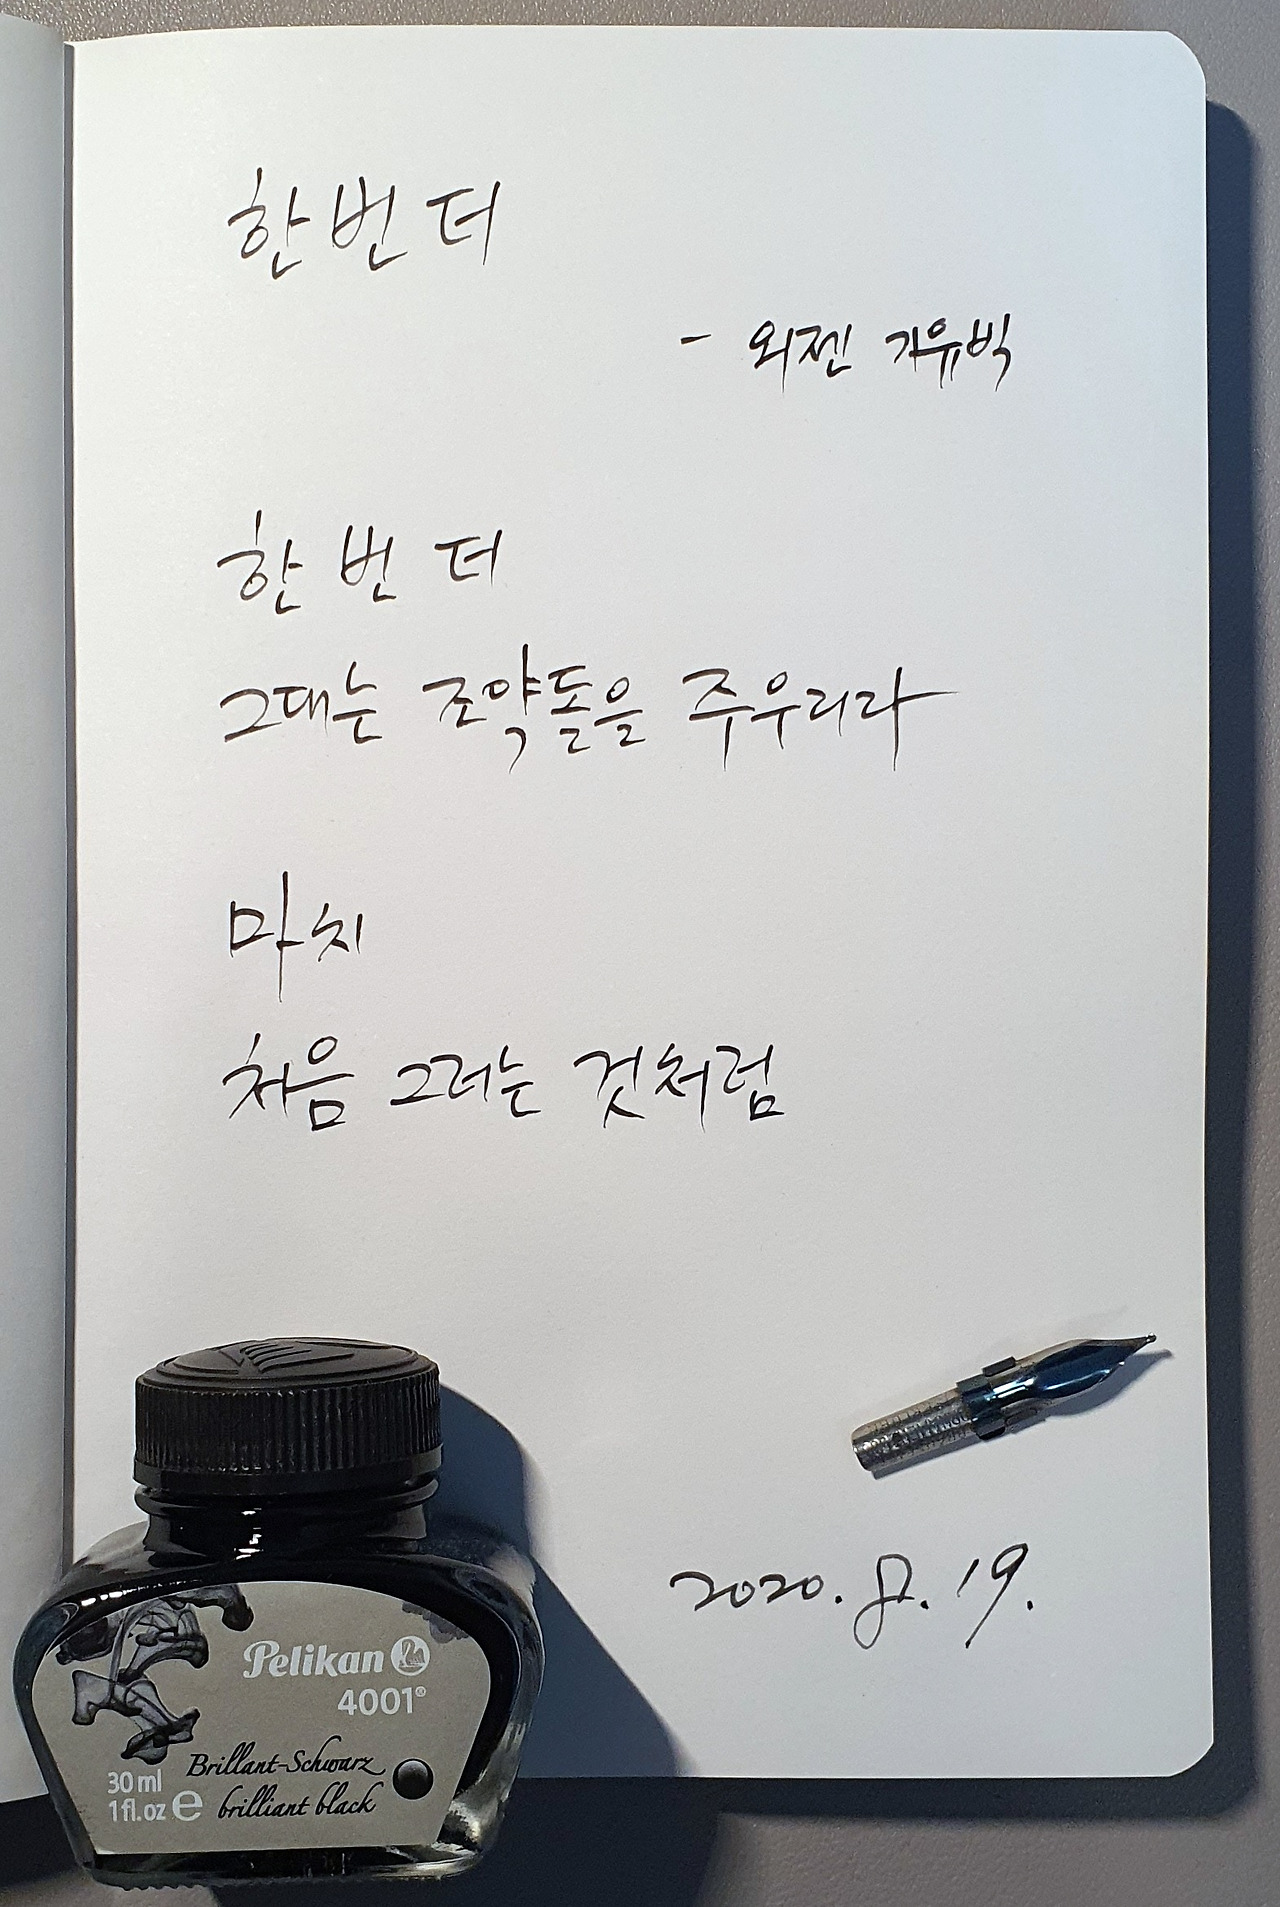 한번 더
- 외젠 기유빅
한 번 더
그대는 조약돌을 주우리라
마치
처음 그러는 것처럼
2020. 8. 19.
Pelikan
4001®
Brillant-Schwarz
brilliant black
30 ml
1 fl.oz e